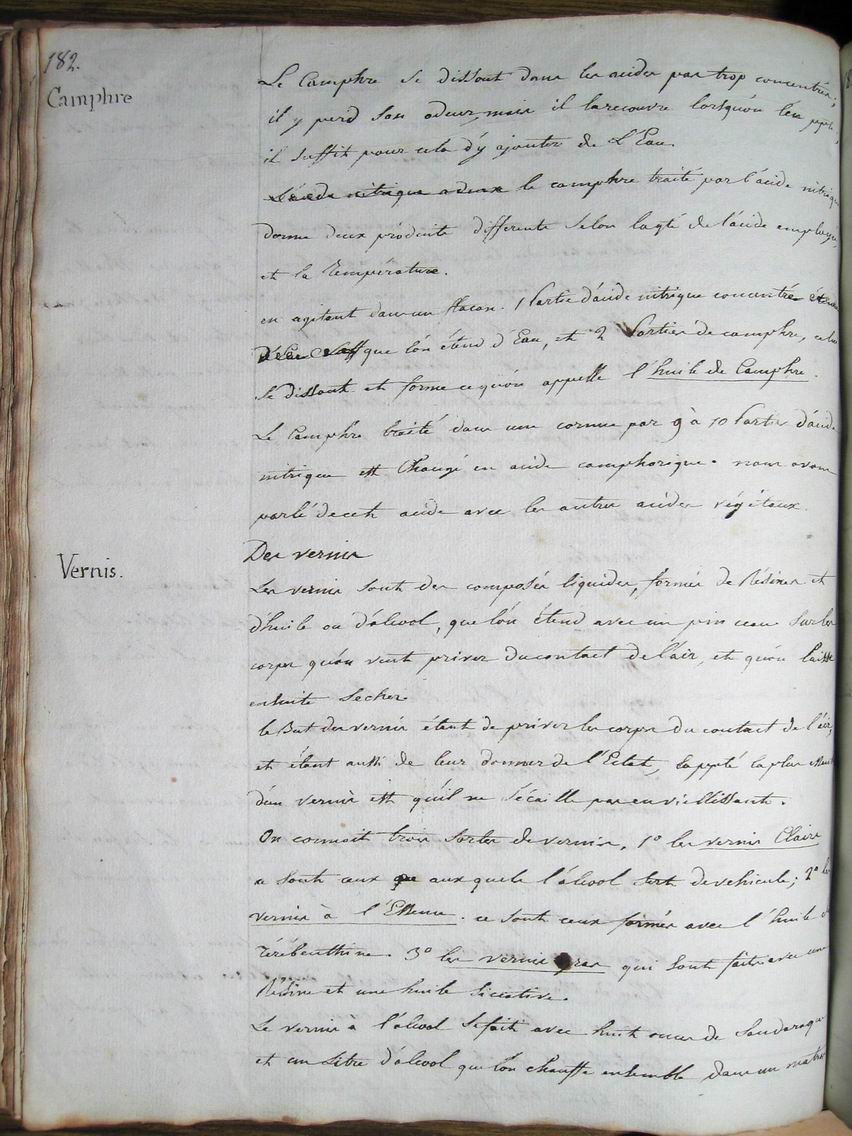 182.
Camphre
Le Camphre se dissout dans les acides pas trop concentrés;
il y perd son odeur, mais il la recouvre lorsqu'on l'en ppte,
il suffit pour cela d'y ajouter de L'Eau.
L'acide nitrique le camphre traité par l'acide nitrique
donne deux produits differents selon la qté de l'acide employé,
et la Température.
en agitant dans un flacon. 1 Partie d'acide nitrique concentré
que lon étend d'Eau, et 2 Parties de camphre, celui
se dissout et forme ce qu'on appelle l'huile de Camphre.
Le Camphre traité dans une cornue par 9 à 10 Parties d'acide
nitrique est Changé en acide camphorique. nous avons
parlé de cet acide avec les autres acides végétaux.
Vernis.
Des vernis
Les vernis sont des composés liquides, formés de Résines et
d'huile ou d'alcool, que lon étend avec un pinceau sur les
corps qu'on veut priver du contact de l'air, et qu'on laisse
ensuite secher
le But des vernis étant de priver les corps du contact de l'air,
et étant aussi de leur donner de l'Eclat, la ppté la plus
d'un vernis est qu'il ne s'écaille pas en vieillissant.
On connoit trois sortes de vernis, 1º les vernis Clairs
ce sont ceux que auxquels l'alcool sert de vehicule; 2º les
vernis à l'Essence. ce sont ceux formés avec l'huile de
Térébenthine. 3º les vernis gras qui sont faits avec une
Résine et une huile siccative.
Le vernis à l'alcool se fait avec huit onces de Sandaraque
et un Litre d'alcool que lon chauffe ensemble dans un matras